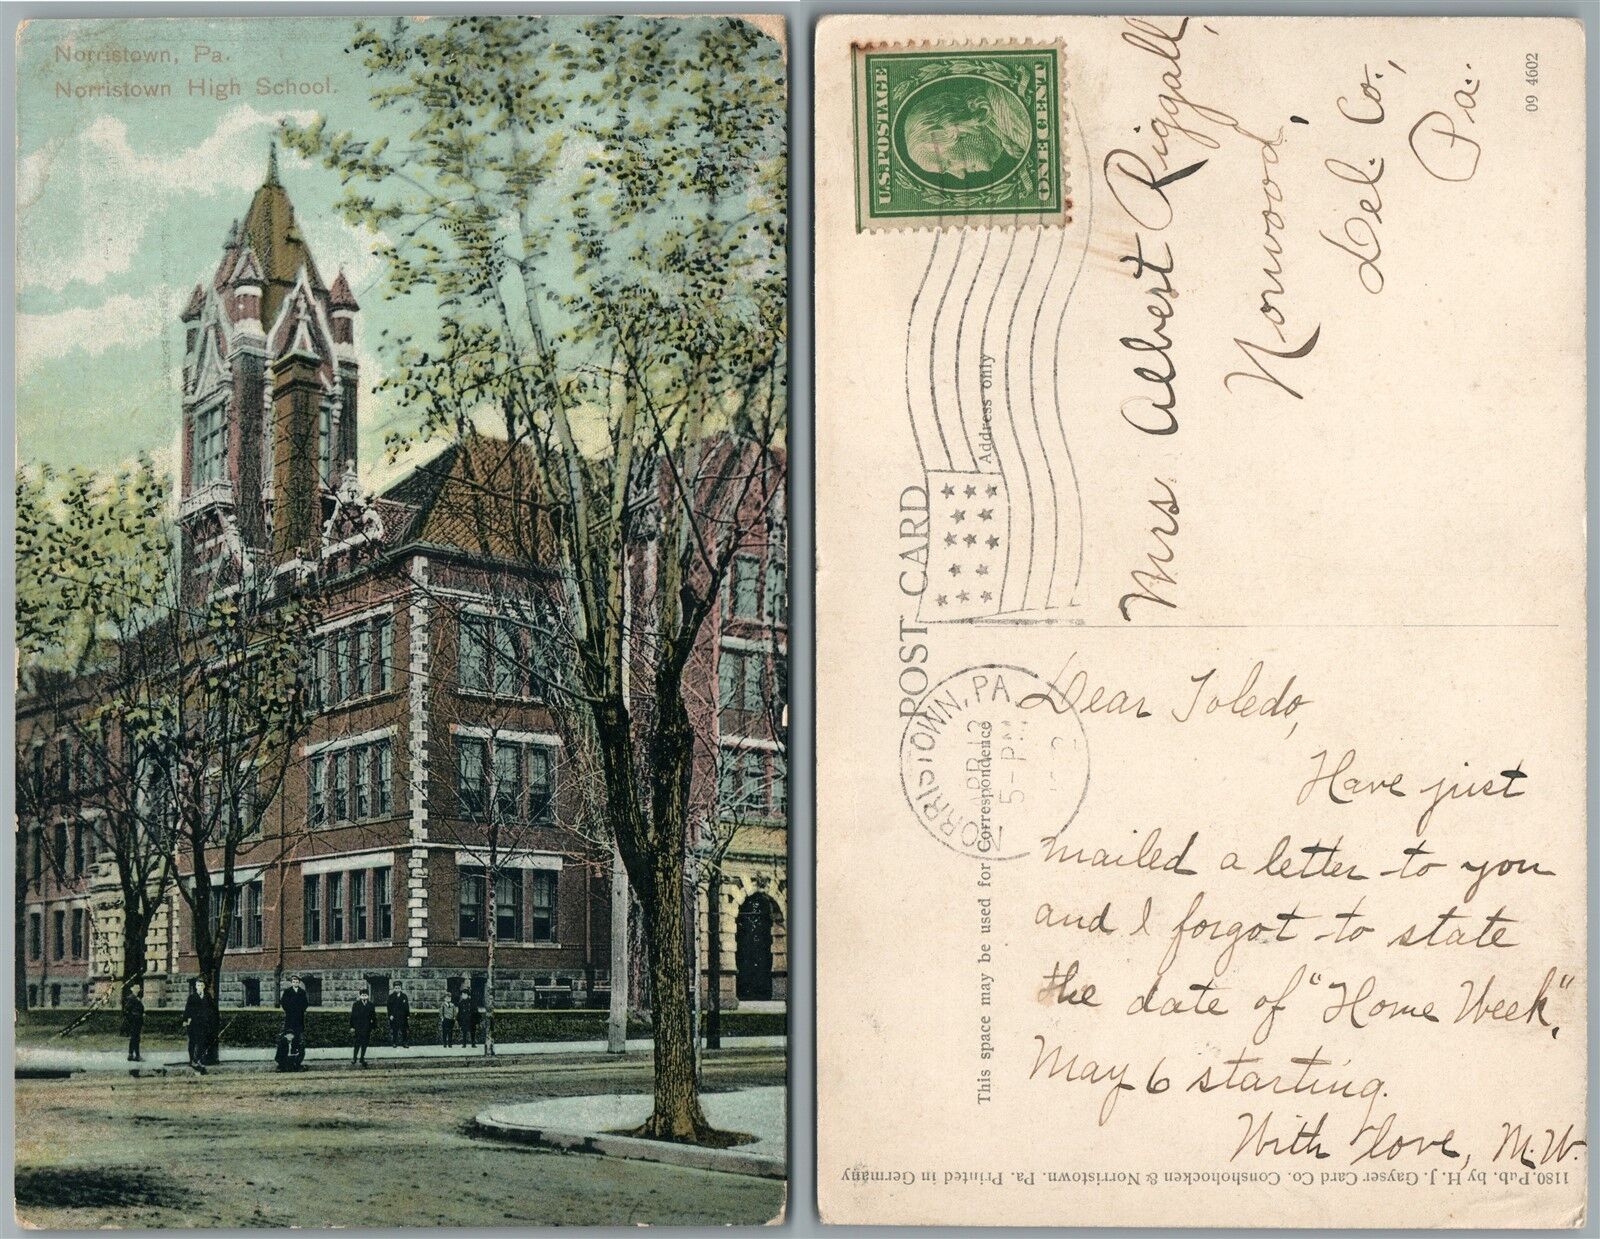 Norristown, Pa.
Norristown High School.
U.S. POSTAGE
ONE CENT
09 4602
Mrs. Albert Riggall,
Norwood,
Del. Co.,
Pa.
POST CARD
Address only
This space may be used for Correspondence
NORRISTOWN, PA
APR 13
5-PM
Dear Toledo,
Have just
mailed a letter to you
and I forgot to state
the date of "Home Week",
May 6 starting.
With love, M.W.
1180. Pub. by H. J. Gayser Card Co. Conshohocken & Norristown. Pa. Printed in Germany